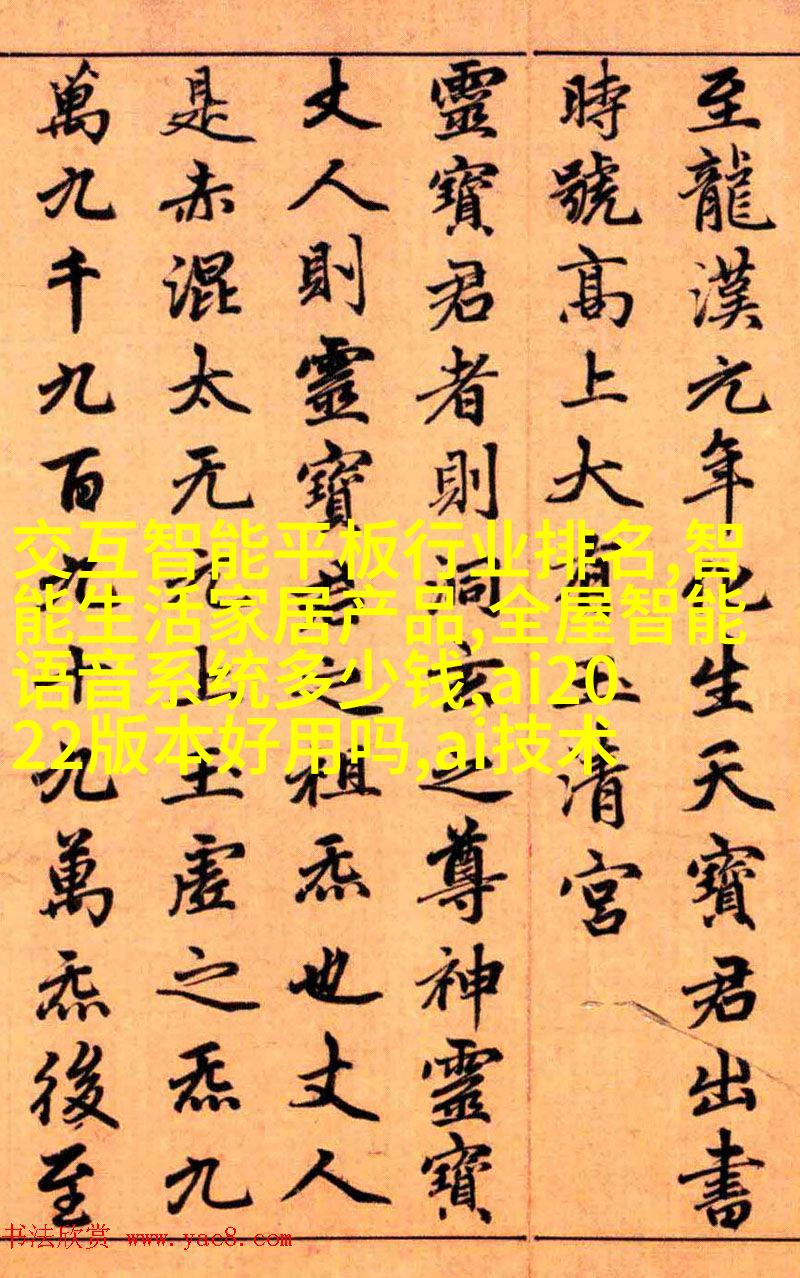 至龍漢元年化生天寶君出書
時號高上大有玉清宮
靈寶君者則洞玄之尊神靈寶
丈人則靈寶君之祖炁也丈人
是赤混太无元上玉虛之炁九
萬九千九百九十九萬炁後至
交互智能平板行业排名,智
能生活家居产品,全屋智能
语音系统多少钱,ai20
22版本好用吗,ai技术
书法欣赏 www.yac8.com